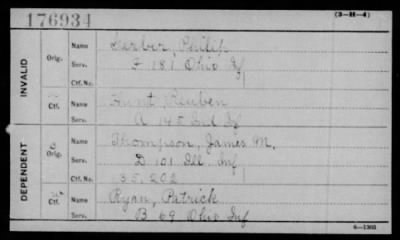 176934
(3-H-4)
INVALID
Orig.
Name Gerber, Philip
Serv. F 181 Ohio Inf
Ctf. No.
Ctf.
Name Hunt, Reuben
Serv. A 145 Ind Inf
DEPENDENT
Orig.
Name Thompson, James M.
Serv. D 101 Ill. Inf
Ctf. No. 135,202
Ctf.
Name Ryan, Patrick
Serv. B 69 Ohio Inf